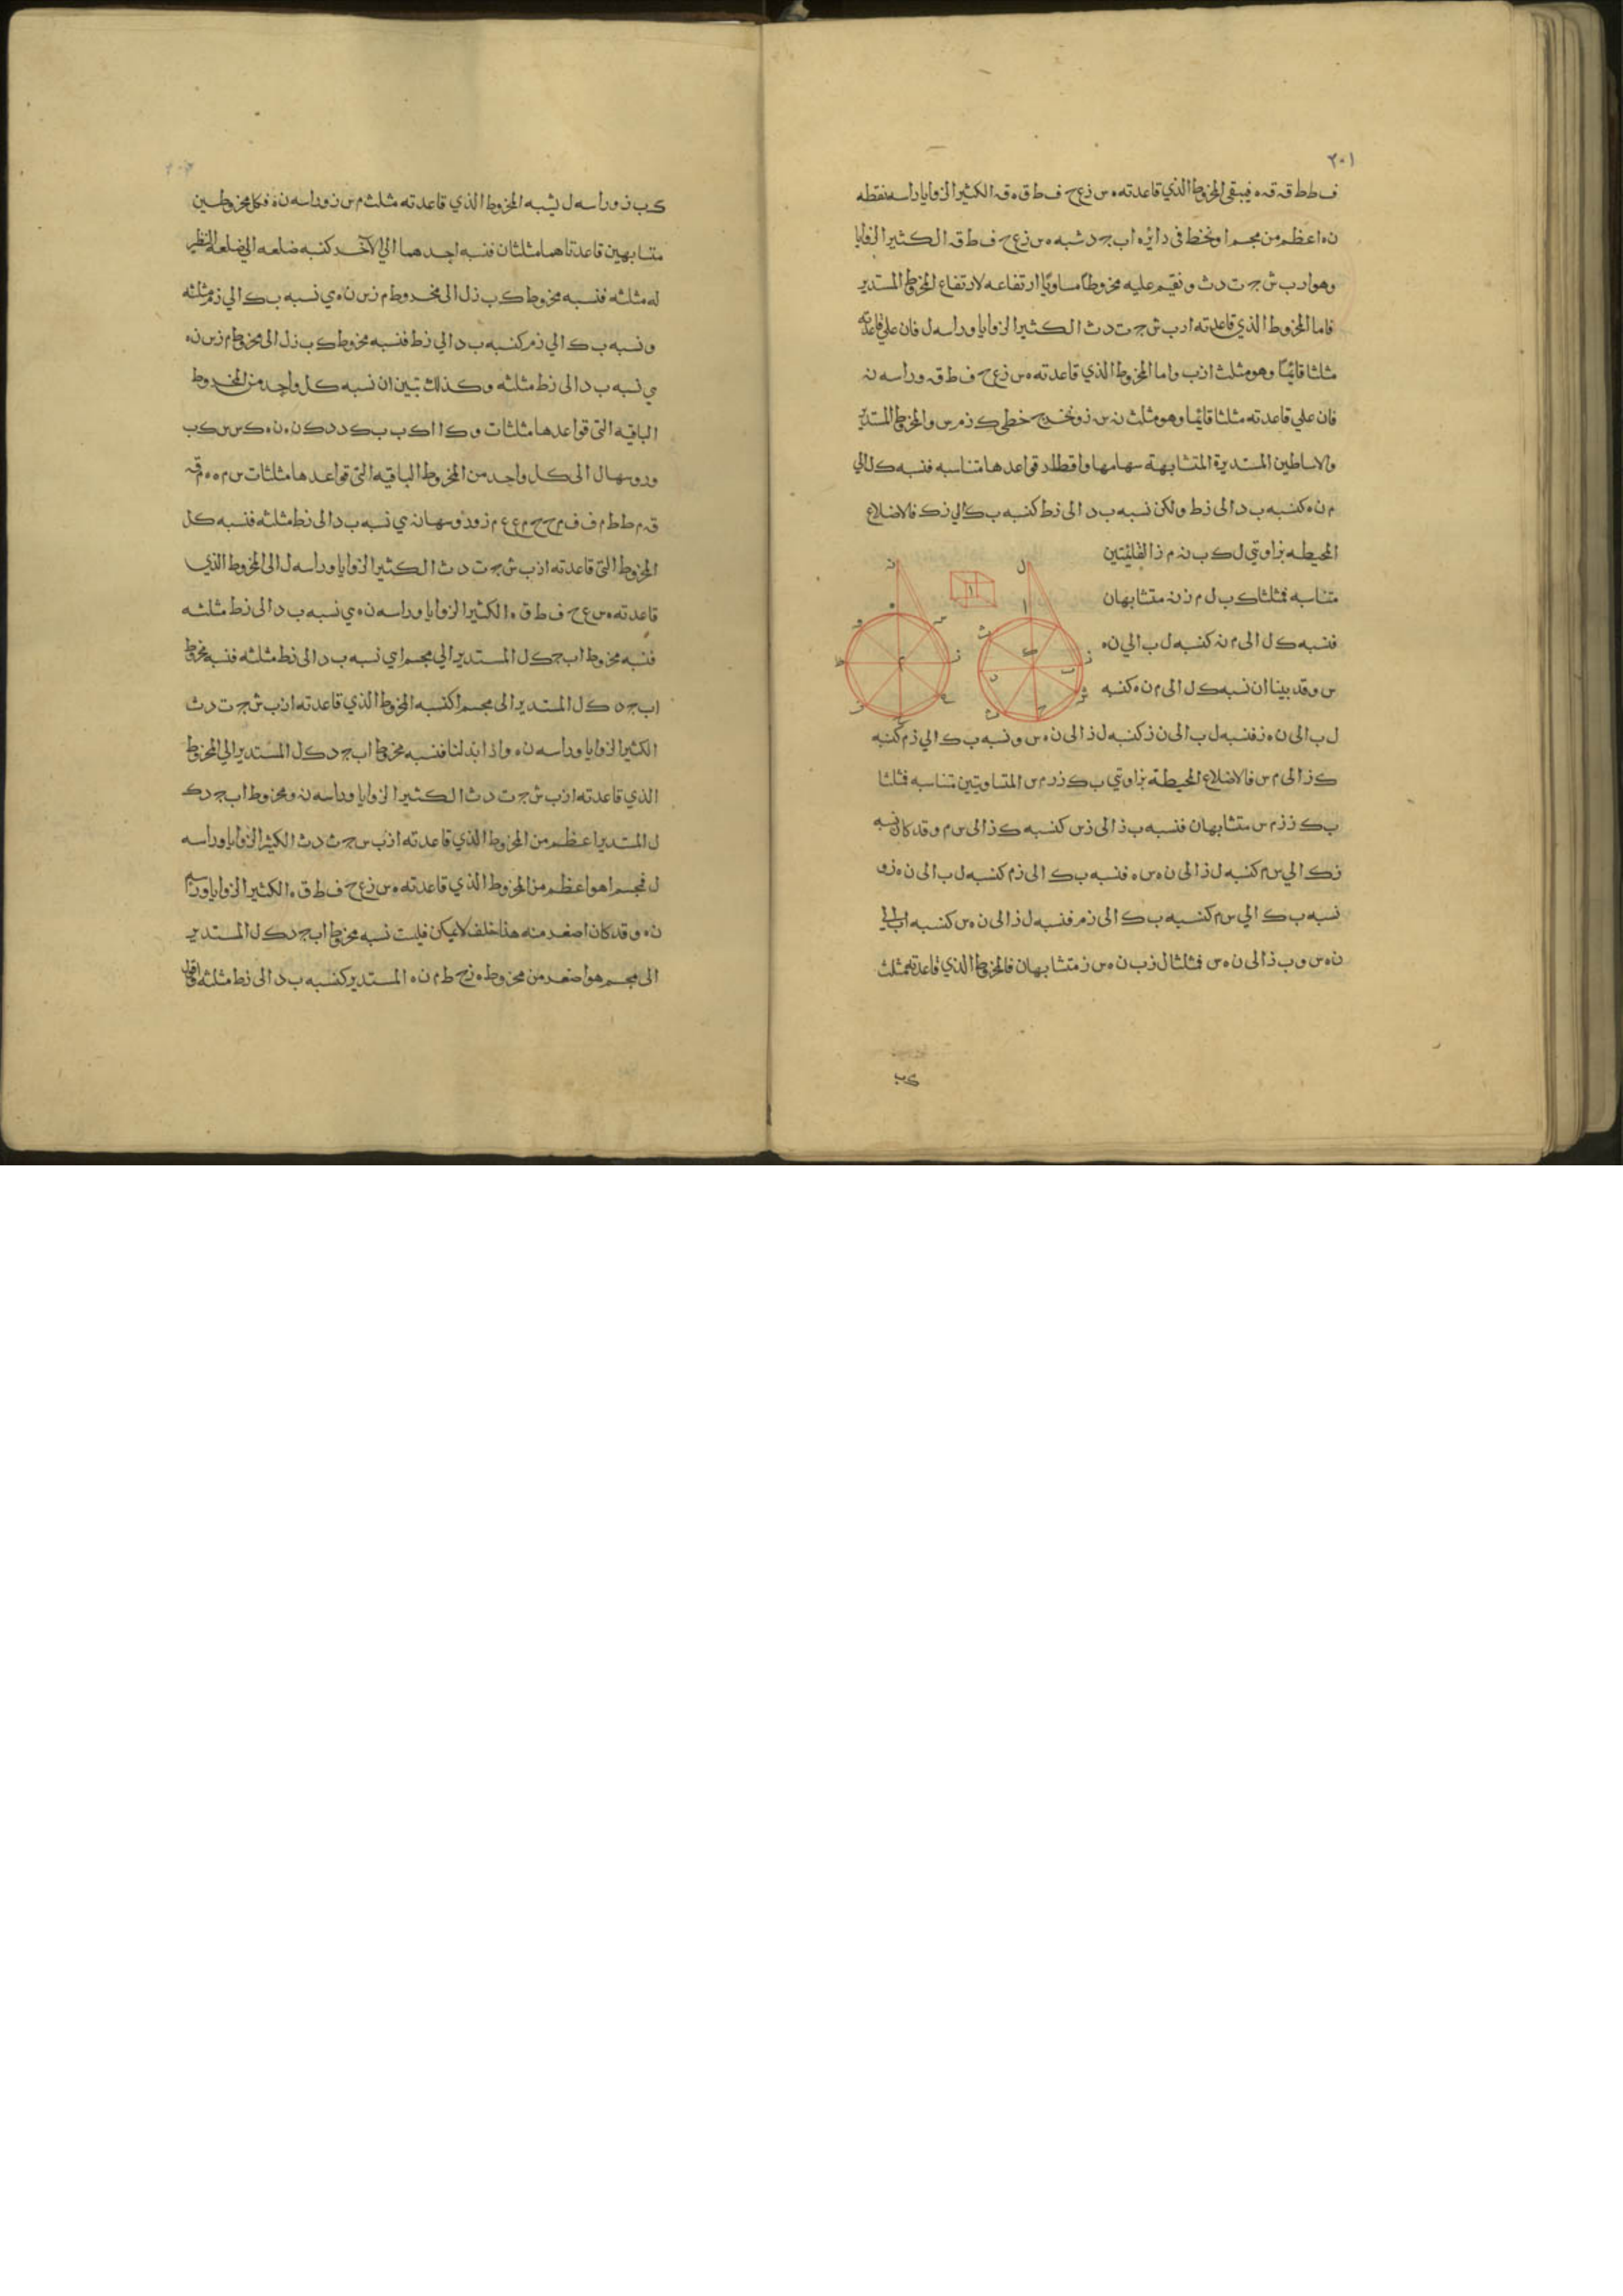 ٢٠١
ف ط ط ق ق ه فيبقي المخروط الذي قاعدته ه س ز ع ح ف ط ق ه ق الكثير الزوايا راسه نقطه
ن ه اعظم من مجسم ا ونخط في دايره ا ب ج د شبه ه س ز ع ح ف ط ق الكثير الزوايا
وهو ا ر ب ش ج ت د ث ونقيم عليه مخروطا مساويا ارتفاعه لارتفاع المخروط المستدير
فاما المخروط الذي قاعدته ا ر ب ش ج ت د ث الكثير الزوايا وراسه ل فان علي قاعدته
مثلثا قايما وهو مثلث ا ز ب واما المخروط الذي قاعدته ه س ز ع ح ف ط ق وراسه ن
فان علي قاعدته مثلثا قايما وهو مثلث ن س ز ونخرج خطي ك ز م س والمخروط المستدير
والاساطين المستديرة المتشابهة سهامها واقطار قواعدها متناسبه فنسبه ك ل الي
م ن ه كنسبه ب د الى ز ط ولكن نسبه ب د الى ز ط كنسبه ب ك الي ز ك فالاضلاع
المحيطه بزاويتي ل ك ب ن م ز القايمتين
متناسبه فمثلثا ك ب ل م ز ن متشابهان
فنسبه ك ل الى م ن كنسبه ل ب الي ن ه
س وقد بينا ان نسبه ك ل الى م ن ه كنسبه
ل ب الى ن ه ز فنسبه ل ب الى ن ز كنسبه ل ز الى ن ه س ونسبه ب ك الي ز م كنسبه
ك ز الى م س فالاضلاع المحيطة بزاويتي ب ك ز ز م س المتساويتين متناسبه فمثلثا
ب ك ز ز م س متشابهان فنسبه ب ز الى ز س كنسبه ك ز الى س م وقد كان نسبه
ز ك الي س م كنسبه ل ز الى ن ه س ه فنسبه ب ك الى ز م كنسبه ل ب الى ن ه ز و
نسبه ب ك الي س م كنسبه ب ك الى ز م فنسبه ل ز الى ن ه س كنسبه ا ب الي
ن ه س و ب ز الى ن ه س فمثلثا ل ز ب ن ه س ز متشابهان فالمخروط الذي قاعدته مثلث
ك ب
ك ب ز وراسه ل يشبه المخروط الذي قاعدته مثلث م س ز وراسه ن ه فكل مخروطين
متشابهين قاعدتاهما مثلثان فنسبه احدهما الي الآخر كنسبه ضلعه الي ضلعه النظير
له مثلثه فنسبه مخروط ك ب ز ل الى مخروط م ز س ن ه ي نسبه ب ك الي ز م مثلثه
ونسبه ب ك الي ز م كنسبه ب د الي ز ط فنسبه مخروط ك ب ز ل الى مخروط م ز س ن ه
ي نسبه ب د الى ز ط مثلثه وكذلك تبين ان نسبه كل واحد من المخروط
الباقيه التي قواعدها مثلثات و ك ا ا ك ب ب ك د د ك ن ه ن ه ك س س ك ب
وروسها ل الى كل واحد من المخروط الباقيه التي قواعدها مثلثات س م ه ه م ق
ق م ط ط م ف ف م ح ح م ع ع م ز وروسها ن ي نسبه ب د الى ز ط مثلثه فنسبه كل
المخروط التي قاعدته ا ز ب ش ج ت د ث الكثير الزوايا وراسه ل الى المخروط الذي
قاعدته ه س ع ح ف ط ق ه الكثير الزوايا وراسه ن ه ي نسبه ب د الى ز ط مثلثه
فنسبه مخروط ا ب ج ك ل المستدير الي مجسم ا ي نسبه ب د الى ز ط مثلثه فنسبه مخروط
ا ب ج د ك ل المستدير الى مجسم ا كنسبه المخروط الذي قاعدته ا ز ب ش ج ت د ث
الكثير الزوايا وراسه ن ه واذا بدلنا فنسبه مخروط ا ب ج د ك ل المستدير الي المخروط
الذي قاعدته ا ز ب ش ج ت د ث الكثير الزوايا وراسه ن ه ومخروط ا ب ج د ك
ل المستدير اعظم من المخروط الذي قاعدته ا ز ب س ج ث د ث الكثير الزوايا وراسه
ل فمجسم ا هو اعظم من المخروط الذي قاعدته ه س ز ع ح ف ط ق ه الكثير الزوايا وراسه
ن ه وقد كان اصغر منه هذا خلف لا يمكن فليت نسبه مخروط ا ب ج د ك ل المستدير
الى مجسم هو اصغر من مخروط ه ز ح ط م ن ه المستدير كنسبه ب د الى ز ط مثلثه